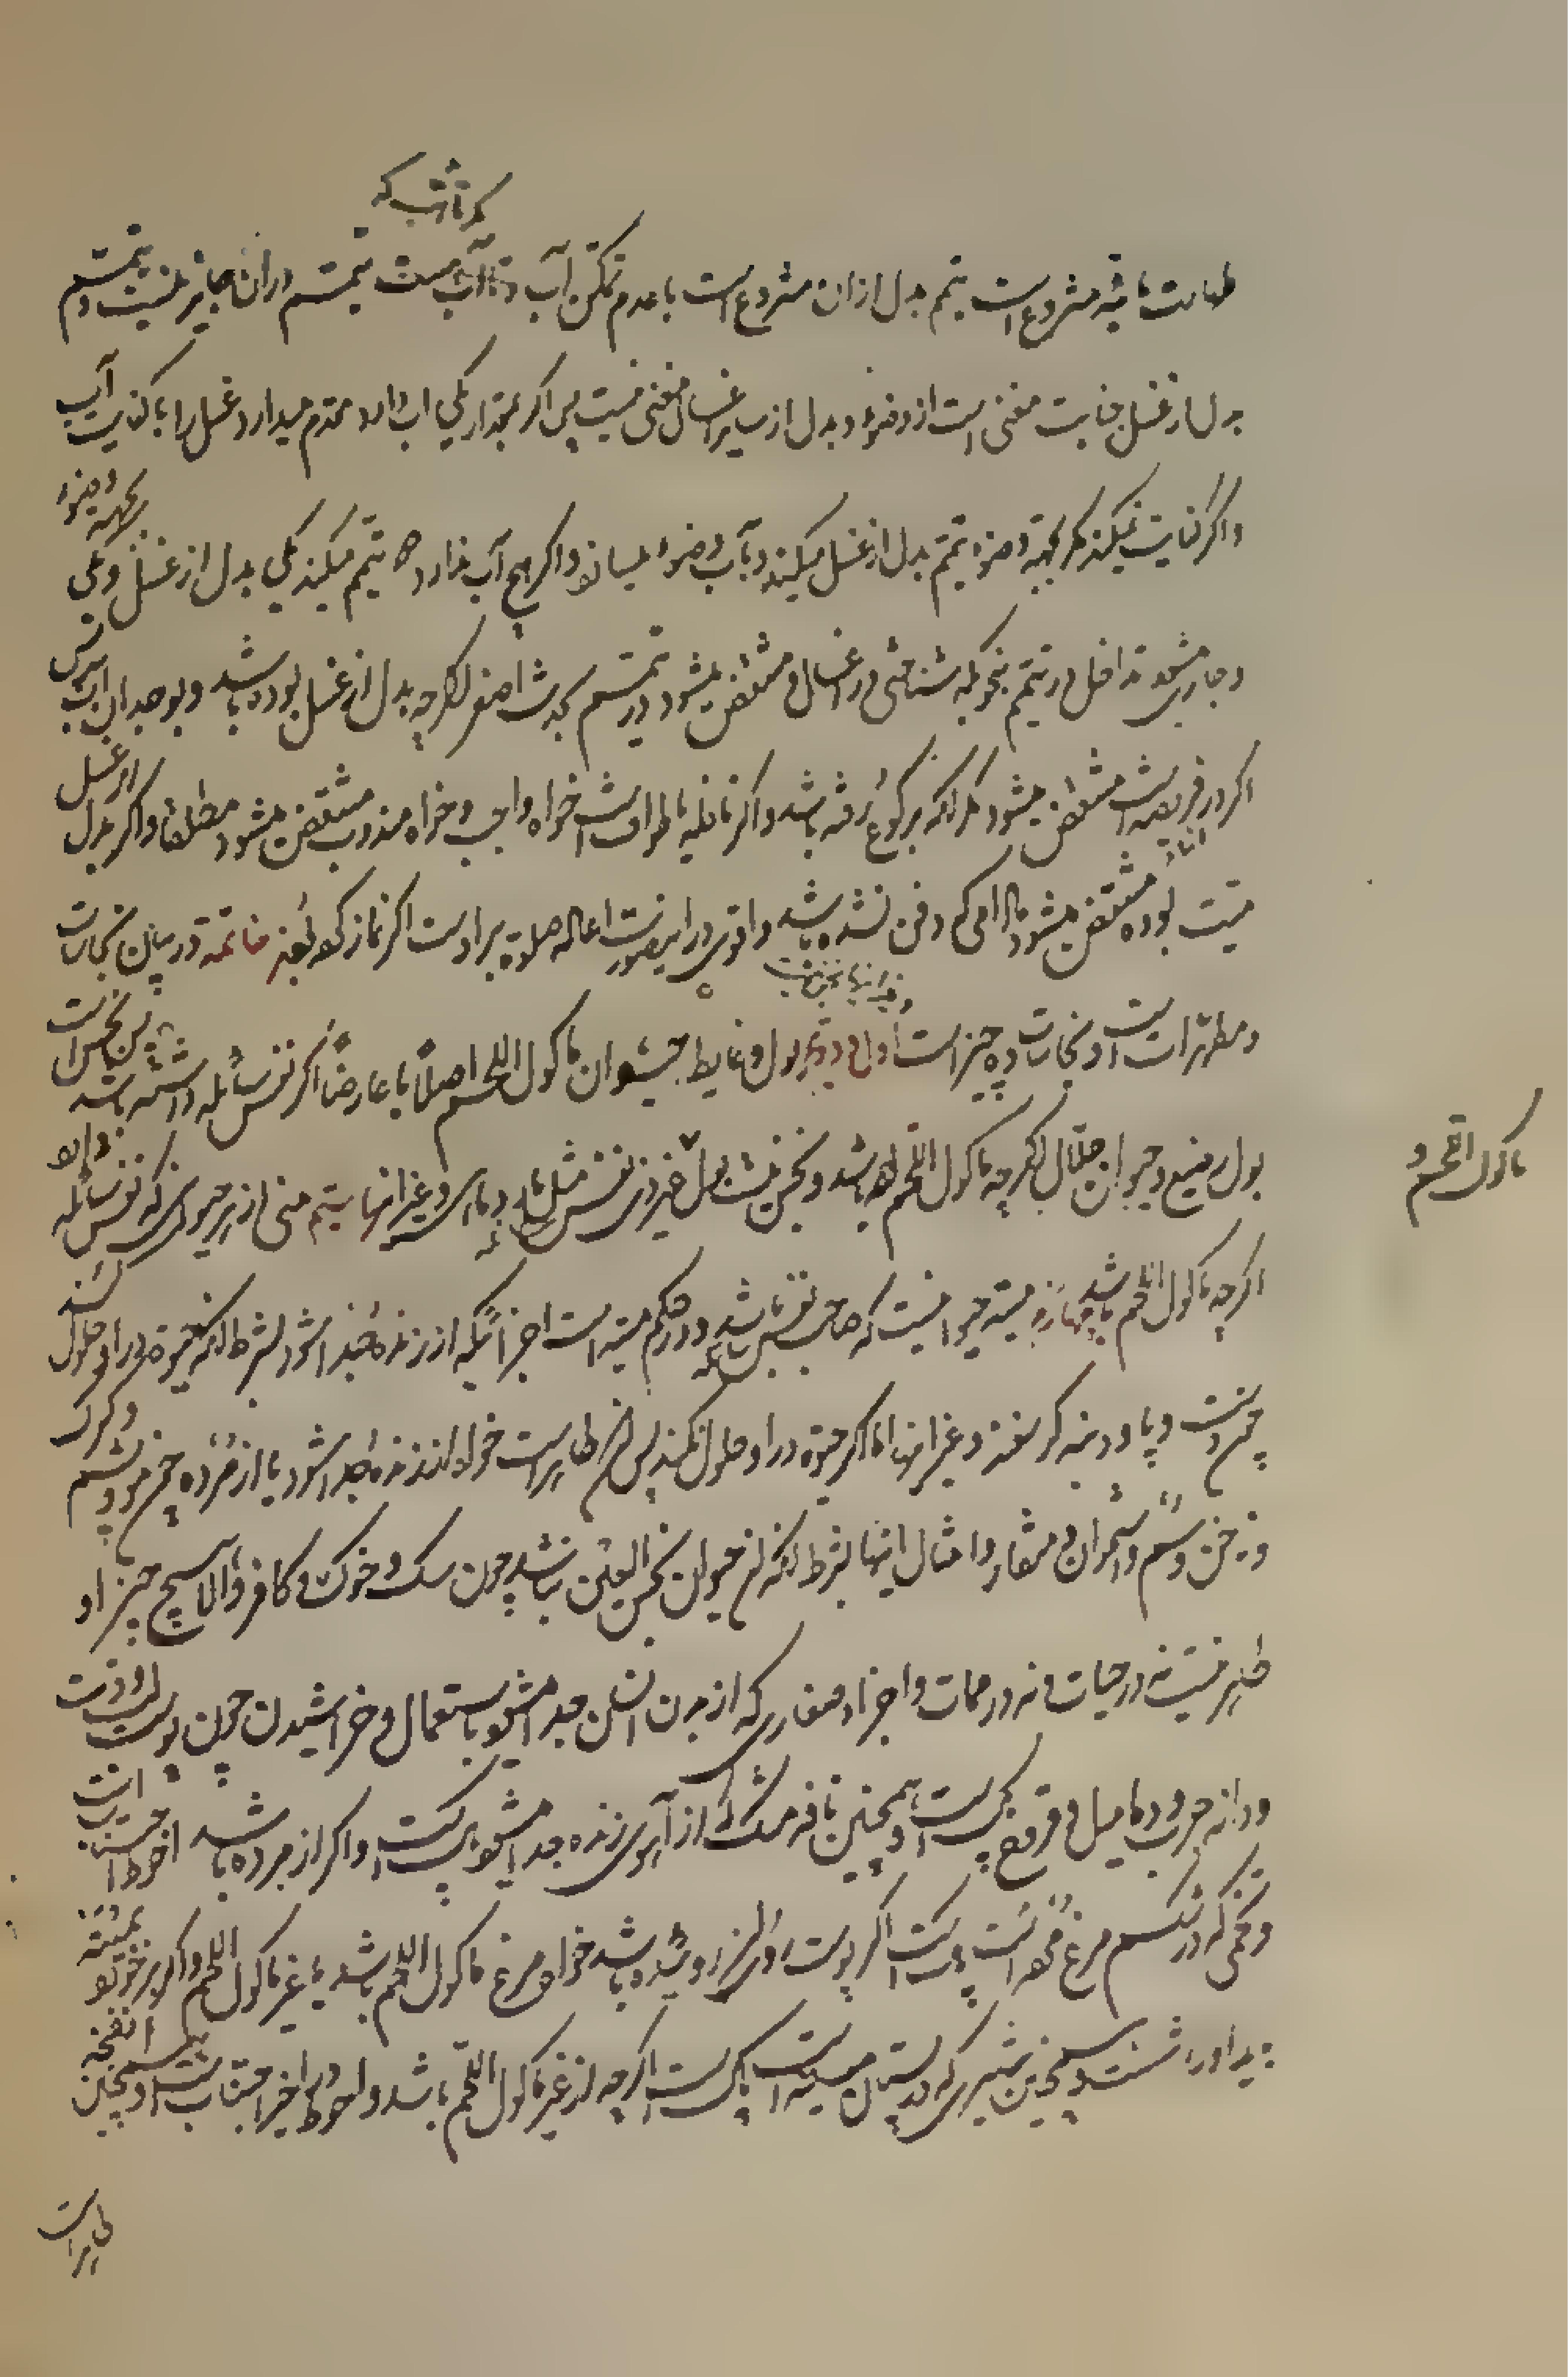 مکر تا شب که
طهارت مائیه مشروع است تیمم بدل ازان مشروع است با عدم تمکن آب و تا آب هست تیمم دران جایز نیست و تیمم
بدل از غسل جنابت مغنی است از وضوء و بدل از سایر اغسال مغنی نیست پس اگر بمقدار یکی اب دارد مقدم میدارد غسل را با کفایت آب
و اگر کفایت نمیکند مگر بجهة وضوء تیمم بدل از غسل میکند و بآب وضوء میسازد و اگر هیچ آب ندارد دو تیمم میکند یکی بدل از غسل و یکی بجهة وضوء
و جاری میشود تداخل در تیمم بنحویکه شناختی در اغسال و منتقض میشود تیمم بحدث اصغر اگرچه بدل از غسل بوده باشد و بوجدان آب پس
اگر در فریضه است منتقض میشود مگر انکه برکوع رفته باشد و اگر نافله یا طواف است خواه واجب و خواه مندوب منتقض میشود مطلقا و اگر بدل از غسل
میت بوده منتقض میشود مادامی که دفن نشده باشد و اقوی دراینصورت اعاده صلوة بر اوست اگر نماز کرده بعد خاتمه در بیان نجاسات
و مطهرات است و نجاسات ده چیز است اول و دویم بول و غایط حیوان ماکول اللحم اصلا یا عارضا اگر نفس سائله داشته باشد پس نجس است
بول رضیع و حیوان جلال اگرچه ماکول اللحم بوده باشد و نجس نیست بول غیر ذی نفس مثل مار و ماهی و غیر انها سیم منی از هر حیوانی که نفس سائله دارد
ماکول اللحم و
اگرچه ماکول اللحم باشد چهارم میته حیوانیست که صاحب نفس سائله باشد و در حکم میته است اجزائیکه از زنده جدا شود بشرط انکه حیوة در او حلول کند
چون دست و پا و دنبه گوسفند و غیر انها اما اگر حیوة در او حلول نکند پس ان طاهر است خواه از زنده جدا شود یا از مرده چون مو و پشم و کرک
و ناخن و سم و استخوان و منقار و امثال اینها بشرط انکه ان حیوان نجس العین نباشد چون سک و خوک و کافر و الا هیچ چیز او
طاهر نیست نه در حیات و نه در ممات و اجزاء صغاری که از بدن انسان جدا میشود باستعمال و خراشیدن چون پوست لب و دست
و دانه جرب و دمامیل و قروح پاک است و همچنین نافه مشک از آهوی زنده جدا میشود پاکست و اگر از مرده باشد احوط اجتناب است
و تخمی که در شکم مرغ مرده است پاکست اگر پوست اول بر او شده باشد خواه مرغ ماکول اللحم باشد یا غیر ماکول اللحم و اگر برخورد بمیته
باید اورا شست و همچنین شیری که در پستان میته است پاک است اگرچه از غیر ماکول اللحم باشد و احوط در اخیر اجتناب است و همچنین انفحه
طاهر است